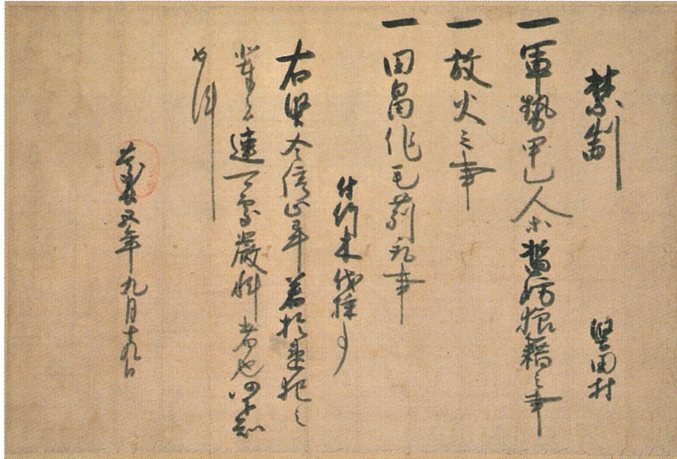 禁制　堅田村
一軍勢甲乙人等濫妨狼藉之事
一放火之事
一田畠作毛苅取事
付竹木伐採事
右堅令停止畢若於違犯之
輩者速可處厳科者也仍下知
如件
慶長五年九月十九日